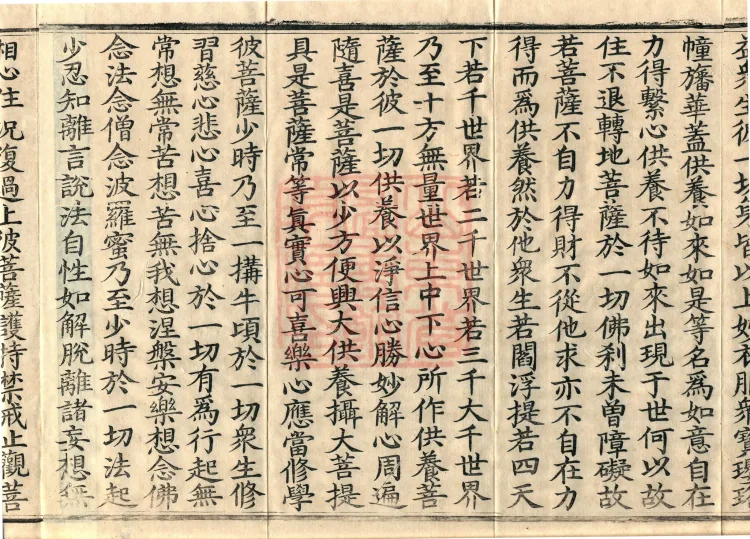 衆生從一切衆皆以上妙衣服衆寶
幢旛華蓋供養如來如是等名爲如意自在
力得繫心供養不待如來出現于世何以故
住不退轉地菩薩於一切佛刹未曽障礙故
若菩薩不自力得財不從他求亦不自在力
得而爲供養然於他衆生若閻浮提若四天
下若千世界若二千世界若三千大千世界
乃至十方無量世界上中下心所作供養菩
薩於彼一切供養以淨信心勝妙解心周遍
隨喜是菩薩以少方便興大供養攝大菩提
具是菩薩常等眞實心可喜樂心應當修學
彼菩薩少時乃至一搆牛頃於一切衆生修
習慈心悲心喜心捨心於一切有爲行起無
常想無常苦想苦無我想涅槃安樂想念佛
念法念僧念波羅蜜乃至少時於一切法起
少忍知離言說法自性如解脫離諸妄想無
相心住況復過上彼菩薩護持禁戒止觀菩